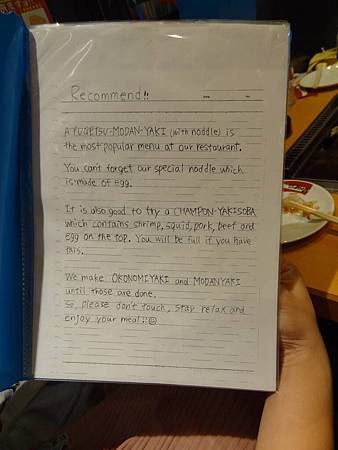 Recommend!!
A FUGETSU-MODAN-YAKI (with noddle) is
the most popular menu at our restaurant.
You can't forget our special noddle which
is made of egg.
It is also good to try a CHAMPON-YAKISOBA
which contains shrimp, squid, pork, beef and
egg on the top. You will be full if you have
this.
We make OKONOMIYAKI and MODANYAKI
until those are done.
So, please don't touch, stay relax and
enjoy your meal!!